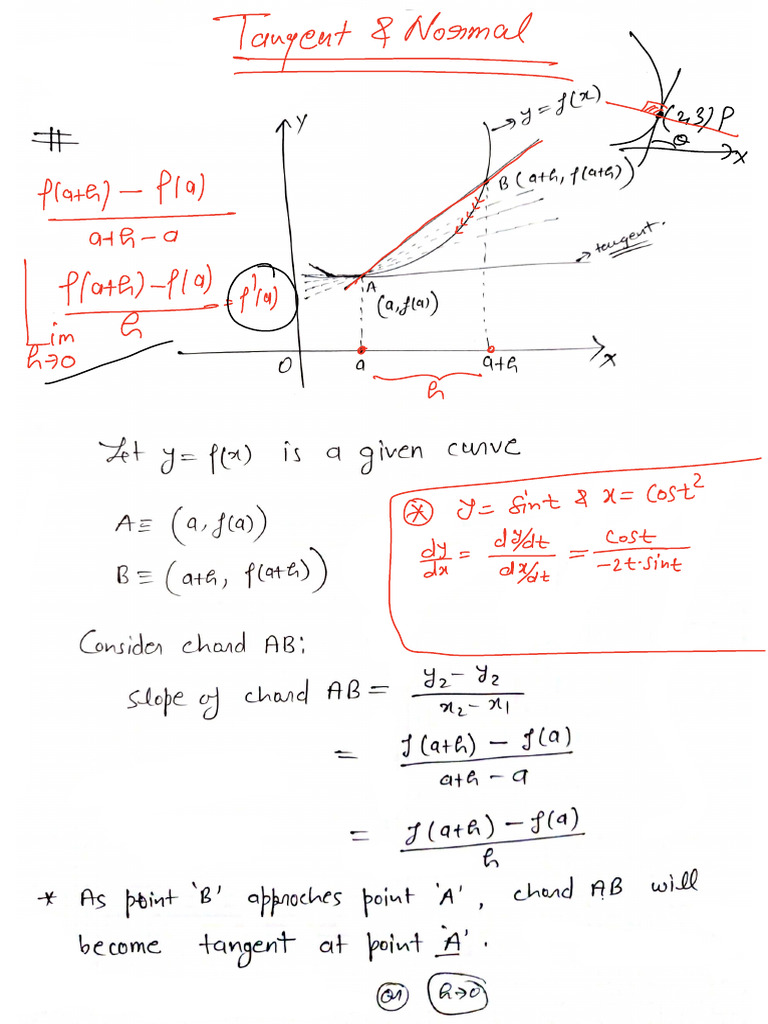 Tangent & Normal
#
Y
y = f(x)
(2,3) P
θ
x
f(a+h) - f(a)
a+h-a
B (a+h, f(a+h))
tangent
lim h→0 f(a+h)-f(a) / h = f'(a)
A
(a, f(a))
O
a
a+h
x
h
Let y = f(x) is a given curve
A ≡ (a, f(a))
B ≡ (a+h, f(a+h))
* y = sint & x = cost²
dy/dx = dy/dt / dx/dt = cost / -2t·sint
Consider chord AB:
slope of chord AB = y₂ - y₂ / x₂ - x₁
= f(a+h) - f(a) / a+h-a
= f(a+h) - f(a) / h
* As point 'B' approches point 'A', chord AB will
become tangent at point 'A'.
or h→0